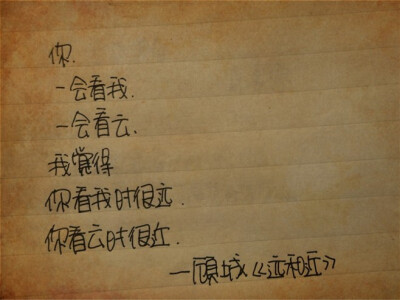 你.
一会看我.
一会看云.
我觉得
你看我时很远.
你看云时很近.
—顾城《远和近》